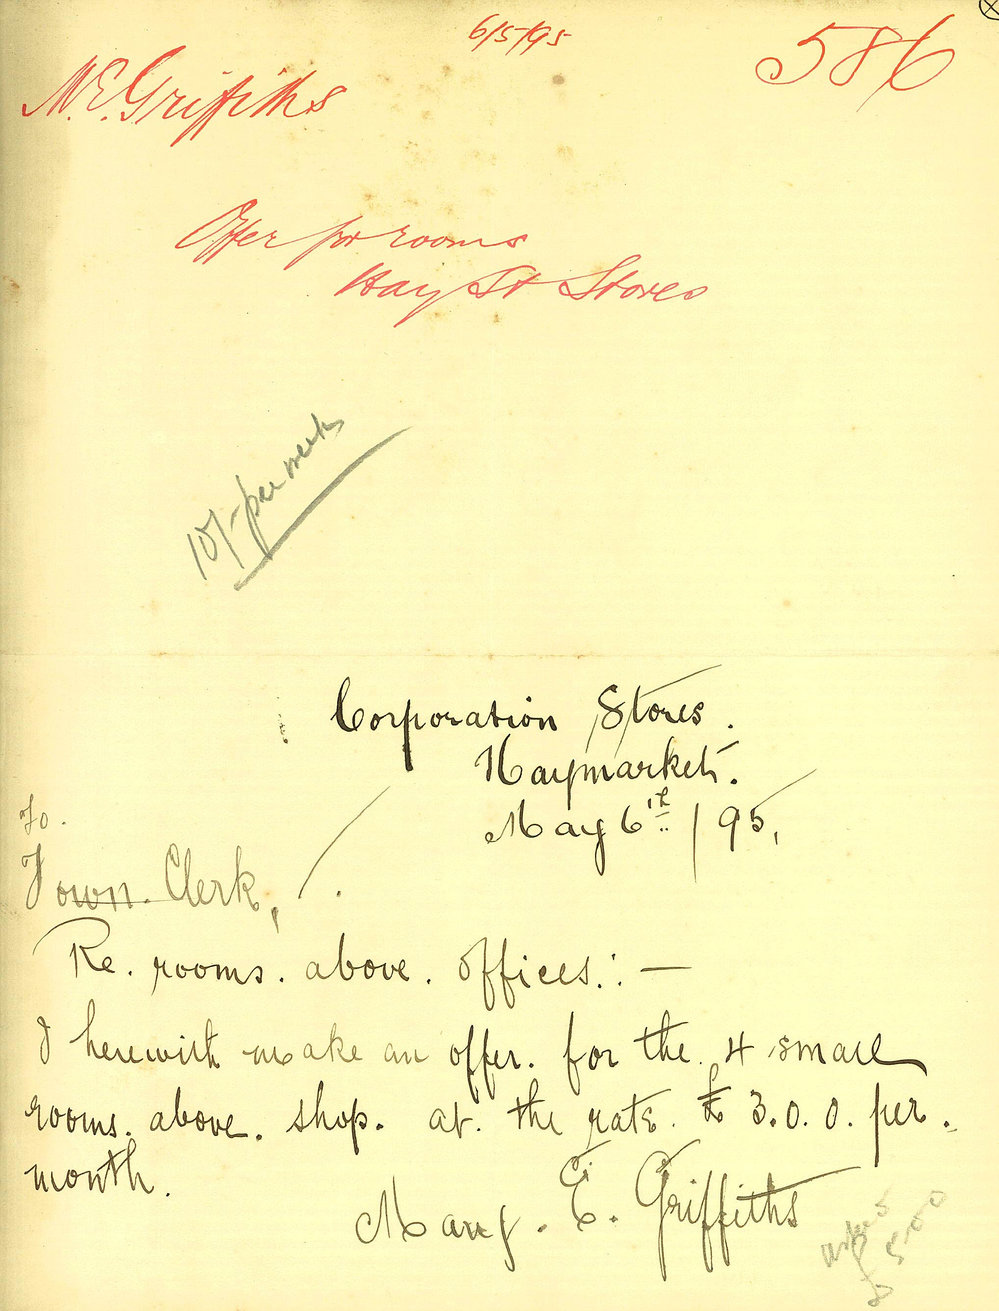 6/5/95
586
M.E. Griffiths
Offer for rooms
Hay St Stores
10/- per week
Corporation Stores.
Haymarket.
May 6th /95,
To.
Town Clerk,
Re. rooms. above. offices.: —
I herewith make an offer. for the 4 small
rooms. above. shop. at. the rate. £ 3.0.0. per.
month.
Mary. E. Griffiths